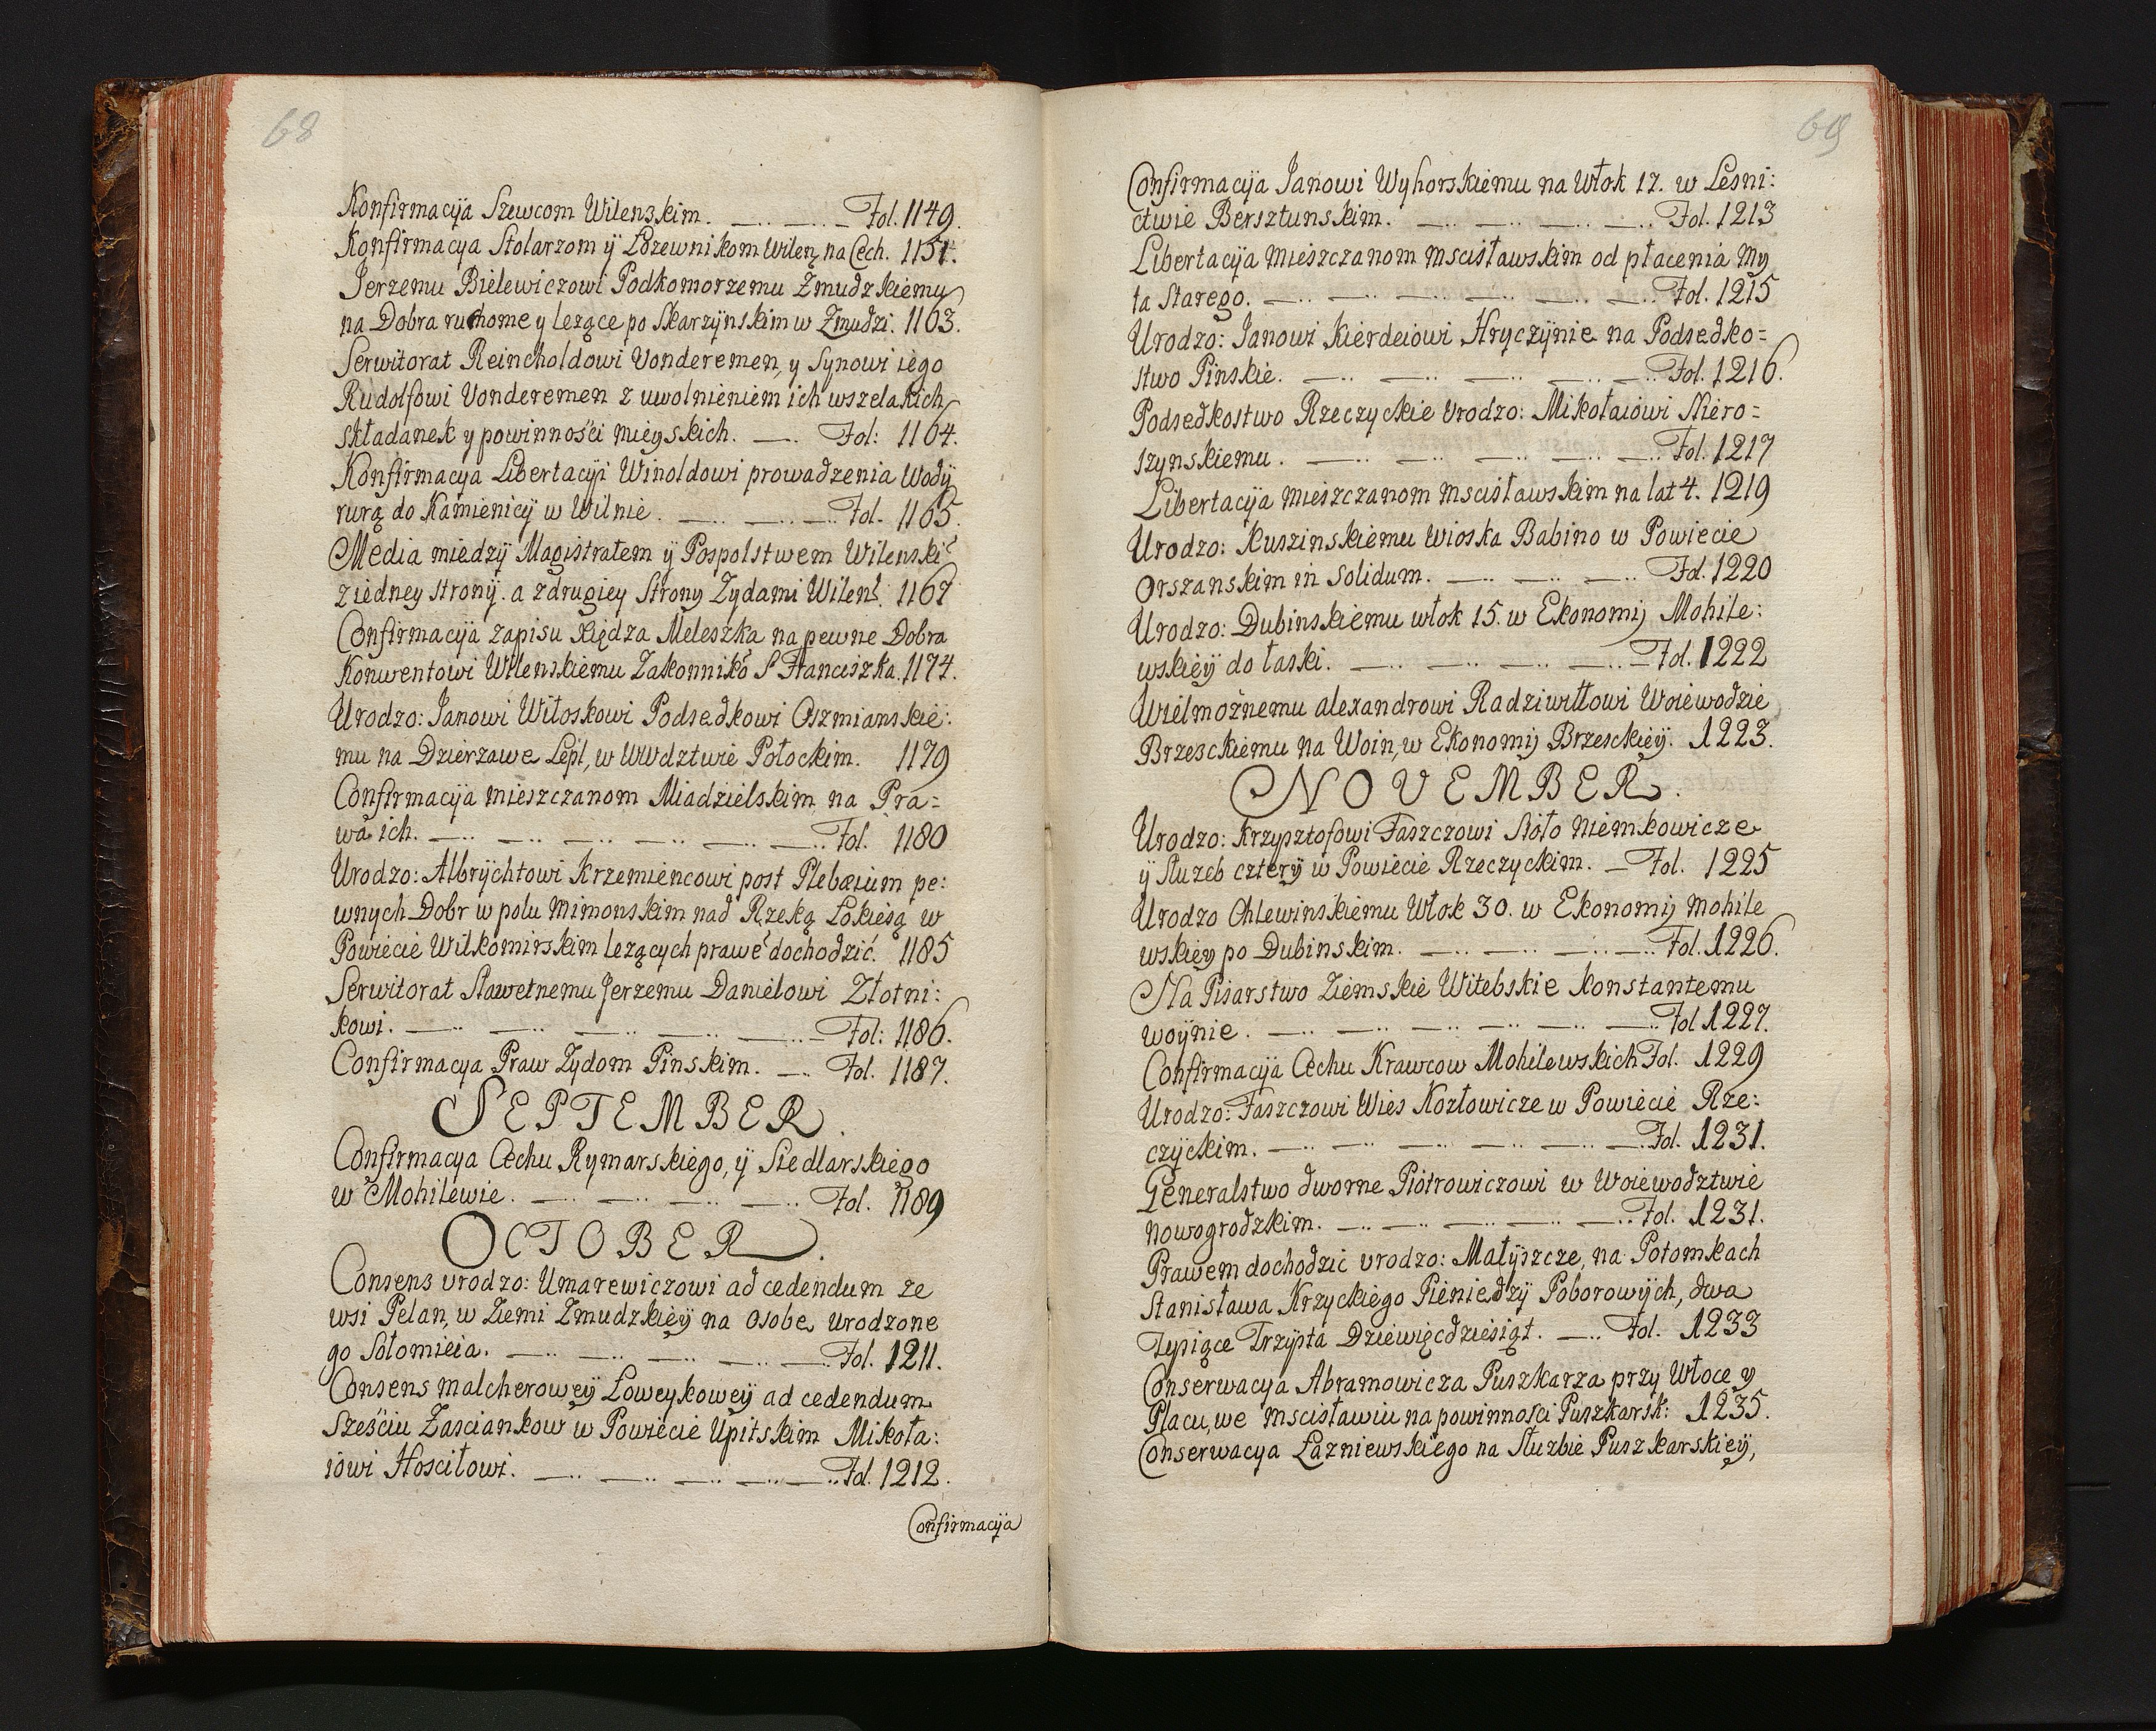 68
Konfirmacÿa Szewcom Wilenzkim. Fol. 1149.
Konfirmacya Stolarzom ÿ Lozewnikom Wilen, na Cech. 1151.
Jerzemu Bielewiczowi Podkomorzemu Zmudzkiemu
na Dobra ruchome y lezące po Skarzÿnskim w Zmudzi. 1163.
Serwitorat Reincholdowi Vonderemen, y Synowi iego
Rudolfowi Vonderemen z uwolnieniem ich wszelakich
składanek y powinności mieyskich. Fol: 1164.
Konfirmacya Libertacÿi Winoldowi prowadzenia Wodÿ
rurą do Kamienicÿ w Wilnie. Fol. 1165.
Media miedzÿ Magistratem ÿ Pospolstwem Wilenski
z iedney Stronÿ. a zdrugiey Strony Zydami Wilen. 1167
Confirmacÿa zapisu Xiędza Meleszka na pewne Dobra
Konwentowi Wilenskiemu Zakonnikō S Franciszka. 1174.
Urodzo: Janowi Witoskowi Podsedkowi Oszmianskie:
mu na Dzierzawe Lepl, w Wwdztwie Połockim. 1179
Confirmacÿa mieszczanom Miadzielskim na Pra=
wa ich. Fol. 1180
Urodzo: Albrÿchtowi Krzemiencowi post Plebæium pe:
wnych Dobr w polu Mimonskim nad Rzeką Łokiesą w
Powiecie Wilkomirskim lezących prawē dochodzić. 1185
Serwitorat Sławetnemu Jerzemu Danielowi Złotni:
kowi. Fol: 1186.
Confirmacya Praw Zydom Pinskim. Fol. 1187.
SEPTEMBER.
Confirmacya Cechu Rymarskiego, ÿ Siedlarskiego
w Mohilewie. Fol. 1189
OCTOBER.
Consens urodzo: Umarewiczowi ad cedendum ze
wsi Pelan, w Ziemi Zmudzkieÿ na osobe urodzone
go Sołomieia. Fol. 1211.
Consens malcheroweÿ Łoweykoweÿ ad cedendum
Sześciu Zasciankow w Powiecie Upitskim Mikoła:
iowi Hosciłowi. Fol. 1212.
Confirmacÿa
69
Confirmacÿa Janowi Wyhorskiemu na Włok 17. w Lesni:
ctwie Bersztunskim. Fol. 1213
Libertacÿa mieszczanom mscisławskim od płacenia My
ta Starego. Fol. 1215
Urodzo: Janowi Kierdeiowi Hryczÿnie na Podsedko=
stwo Pinskie. Fol. 1216.
Podsedkostwo Rzeczyckie Urodzo: Mikołaiowi Niero=
szynskiemu. Fol. 1217
Libertacÿa mieszczanom mscisławskim na lat 4. 1219
Urodzo: Kuszinskiemu Wioska Babino w Powiecie
Orszanskim in Solidum. Fol. 1220
Urodzo: Dubinskiemu włok 15. w Ekonomij Mohile:
wskieÿ do łaski. Fol. 1222
Wielmożnemu alexandrowi Radziwiłłowi Woiewodzie
Brzesckiemu na Woin, w Ekonomij Brzesckieÿ. 1223.
NOVEMBER.
Urodzo: Krzysztofowi Faszczowi Sioło Niemkowicze
ÿ Służeb czterÿ w Powiecie Rzeczyckim. Fol. 1225
Urodzo Chlewinskiemu Włok 30. w Ekonomij mohile
wskieÿ po Dubinskim. Fol. 1226.
Na Pisarstwo Ziemskie Witebskie Konstantemu
woÿnie. Fol 1227.
Confirmacÿa Cechu Krawcow Mohilewskich Fol. 1229
Urodzo: Faszczowi Wies Kozłowicze w Powiecie Rze:
czÿckim. Fol. 1231.
Generalstwo dworne Piotrowiczowi w Woiewodztwie
nowogrodzkim. Fol. 1231.
Prawem dochodzić urodzo: Małÿszcze, na Potomkach
Stanisława Krzyckiego Pieniedzÿ Poborowÿch, dwa
Tysiące Trzÿsta Dziewięcdziesiąt. Fol. 1233
Conserwacya Abramowicza Puszkarza przy Włoce y
Placu, we mscisławiu na powinnosci Puszkarsk: 1235.
Conserwacya Łazniewskiego na Słuzbie Puszkarskieÿ,